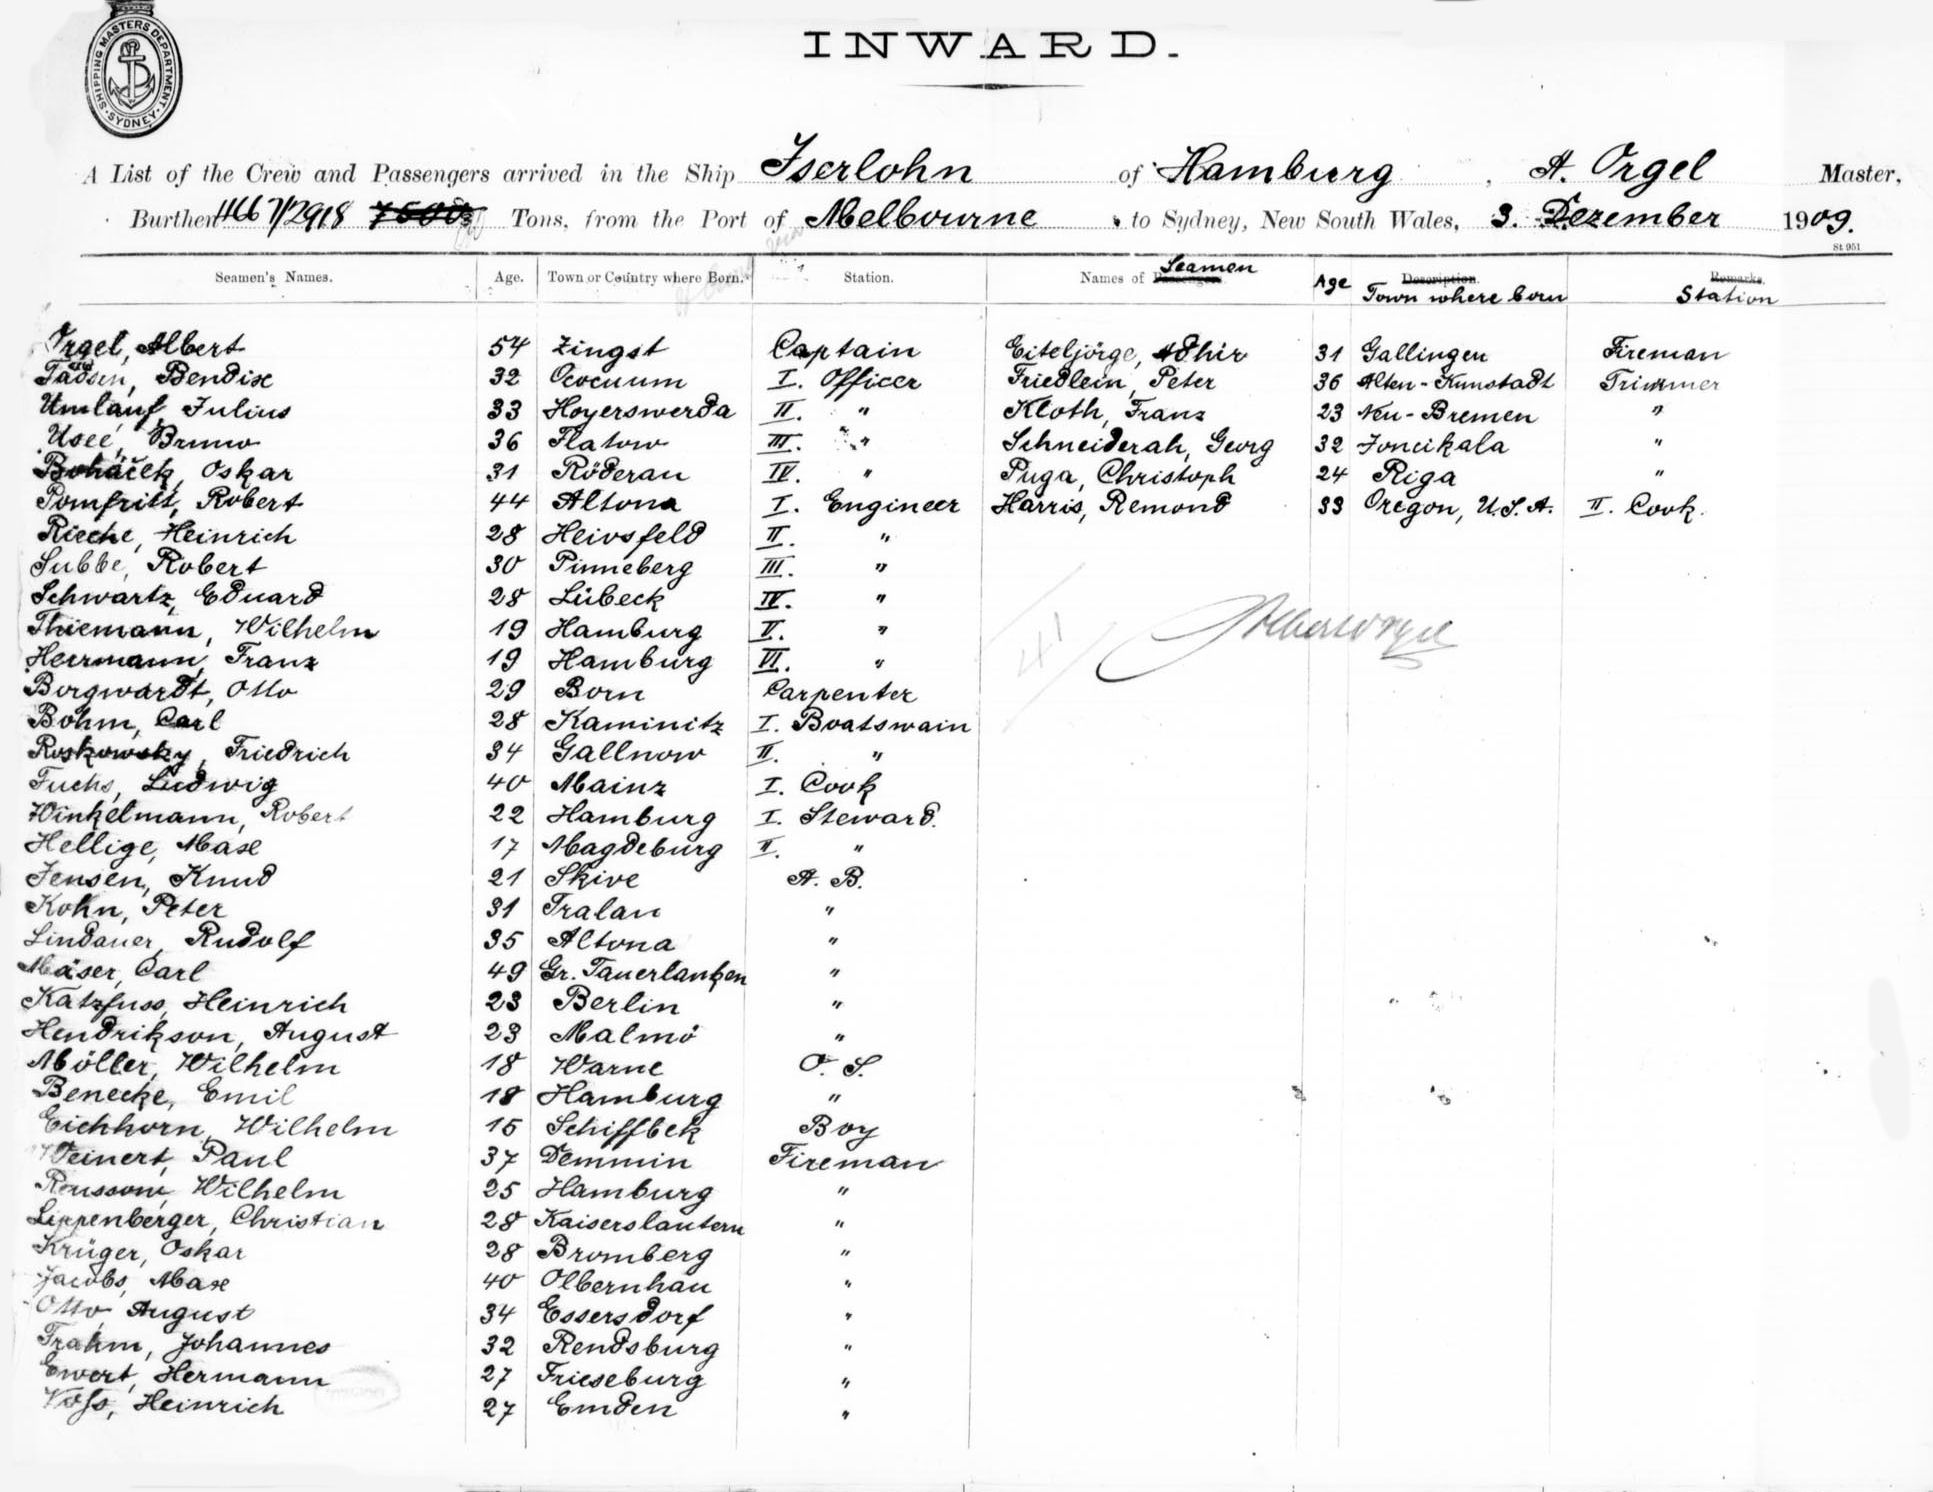 SHIPPING MASTERS DEPARTMENT · SYDNEY ·
INWARD.
A List of the Crew and Passengers arrived in the Ship Iserlohn of Hamburg, A. Orgel Master,
Burthen 4667/2918 7500 Tons, from the Port of Melbourne to Sydney, New South Wales, 3. Dezember 1909.
St 951
Seamen's Names. Age. Town or Country where Born. Station. Names of Passengers Seamen Age Description Town where born Remarks. Station
Orgel, Albert 54 Zingst Captain Eiteljörge, 31 Gallingen Fireman
Tadsen, Bendix 32 Ococuum I. Officer Friedlein, Peter 36 Alten-Kunstadt Trimmer
Umlauf, Julius 33 Hoyerswerda II. " Kloth, Franz 23 Neu-Bremen "
Usee, Bruno 36 Flatow III. " Schneiderah, Georg 32 Joncikala "
Boháček, Oskar 31 Röderau IV. " Puga, Christoph 24 Riga "
Pomfritt, Robert 44 Altona I. Engineer Harris, Remond 33 Oregon, U.S.A. II. Cook.
Rieche, Heinrich 28 Heivsfeld II. "
Subbe, Robert 30 Pinneberg III. "
Schwartz, Eduard 28 Lübeck IV. "
Thiemann, Wilhelm 19 Hamburg V. "
Herrmann, Franz 19 Hamburg VI. "
Borgwardt, Otto 29 Born Carpenter
Böhm, Carl 28 Kaminitz I. Boatswain
Roskowsky, Friedrich 34 Gallnow II. "
Fuchs, Ludwig 40 Mainz I. Cook
Winkelmann, Robert 22 Hamburg I. Steward.
Hellige, Max 17 Magdeburg II. "
Jensen, Knud 21 Skive A. B.
Kohn, Peter 31 Tralau "
Lindauer, Rudolf 35 Altona "
Mäser, Carl 49 Gr. Tauerlauken "
Katzfuss, Heinrich 23 Berlin "
Hendrikson, August 23 Malmö "
Möller, Wilhelm 18 Warne O. S.
Benecke, Emil 18 Hamburg "
Eichhorn, Wilhelm 15 Schiffbek Boy
Weinert, Paul 37 Demmin Fireman
Roussow, Wilhelm 25 Hamburg "
Lippenberger, Christian 28 Kaiserslautern "
Krüger, Oskar 28 Bromberg "
Jacobs, Max 40 Olbernhau "
Otto, August 34 Essersdorf "
Trahm, Johannes 32 Rendsburg "
Ewert, Hermann 27 Frieseburg "
Voss, Heinrich 27 Emden "
41
Albert Orgel